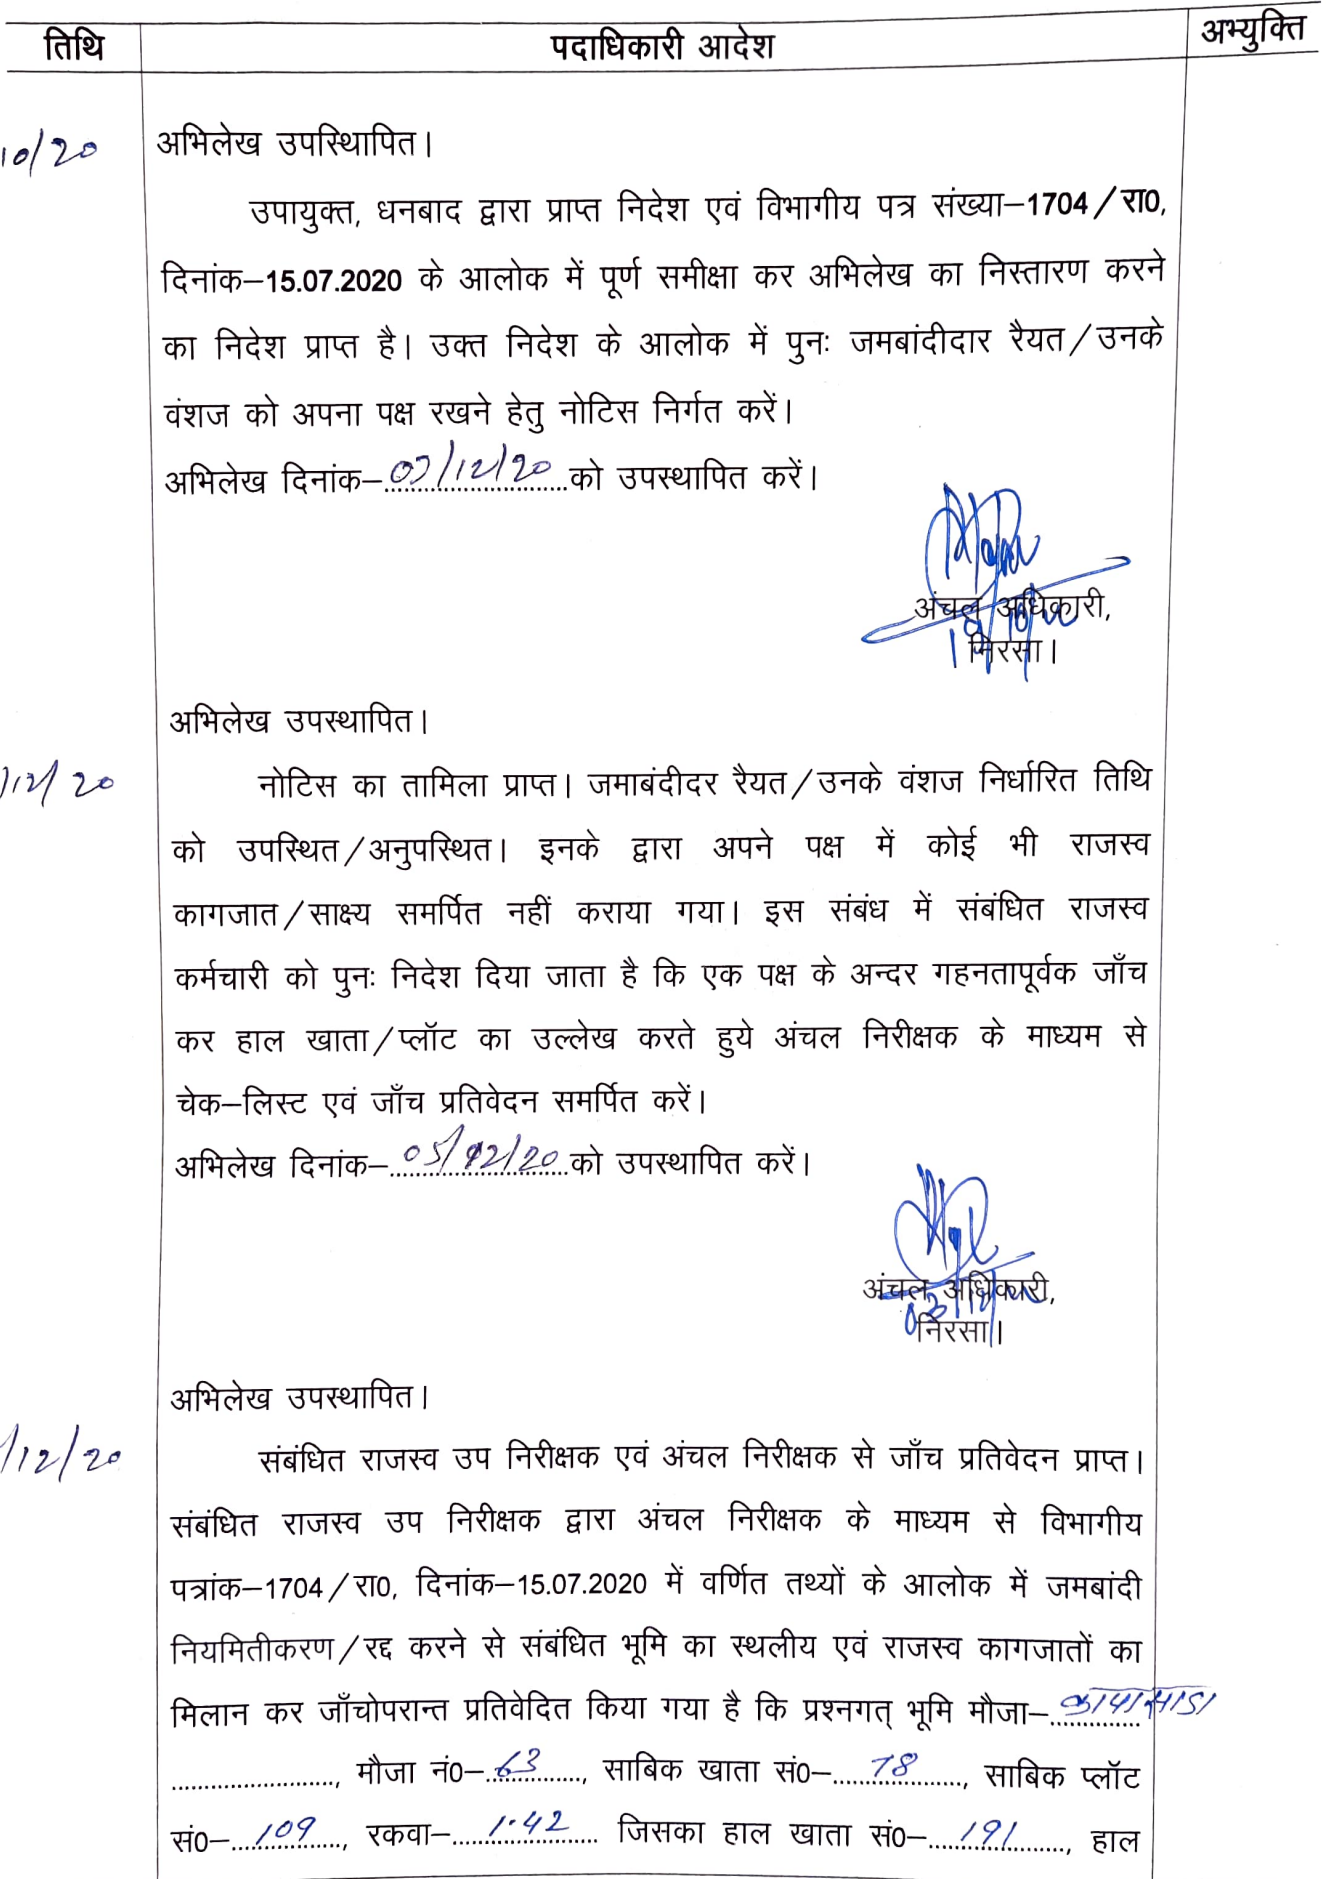 तिथि पदाधिकारी आदेश अभ्युक्ति
10/20 अभिलेख उपस्थिापित।
उपायुक्त, धनबाद द्वारा प्राप्त निदेश एवं विभागीय पत्र संख्या–1704/रा0,
दिनांक–15.07.2020 के आलोक में पूर्ण समीक्षा कर अभिलेख का निस्तारण करने
का निदेश प्राप्त है। उक्त निदेश के आलोक में पुनः जमबांदीदार रैयत/उनके
वंशज को अपना पक्ष रखने हेतु नोटिस निर्गत करें।
अभिलेख दिनांक–/12/20 को उपस्थापित करें।
अंचल अधिकारी,
निरसा।
अभिलेख उपस्थापित।
/12/20 नोटिस का तामिला प्राप्त। जमाबंदीदर रैयत/उनके वंशज निर्धारित तिथि
को उपस्थित/अनुपस्थित। इनके द्वारा अपने पक्ष में कोई भी राजस्व
कागजात/साक्ष्य समर्पित नहीं कराया गया। इस संबंध में संबंधित राजस्व
कर्मचारी को पुनः निदेश दिया जाता है कि एक पक्ष के अन्दर गहनतापूर्वक जाँच
कर हाल खाता/प्लॉट का उल्लेख करते हुये अंचल निरीक्षक के माध्यम से
चेक–लिस्ट एवं जाँच प्रतिवेदन समर्पित करें।
अभिलेख दिनांक–05/12/20 को उपस्थापित करें।
अंचल अधिकारी,
निरसा।
अभिलेख उपस्थापित।
/12/20 संबंधित राजस्व उप निरीक्षक एवं अंचल निरीक्षक से जाँच प्रतिवेदन प्राप्त।
संबंधित राजस्व उप निरीक्षक द्वारा अंचल निरीक्षक के माध्यम से विभागीय
पत्रांक–1704/रा0, दिनांक–15.07.2020 में वर्णित तथ्यों के आलोक में जमबांदी
नियमितीकरण/रद्द करने से संबंधित भूमि का स्थलीय एवं राजस्व कागजातों का
मिलान कर जाँचोपरान्त प्रतिवेदित किया गया है कि प्रश्नगत् भूमि मौजा–
...................., मौजा नं0–63, साबिक खाता सं0–78, साबिक प्लॉट
सं0–109, रकवा–1.42 जिसका हाल खाता सं0–191, हाल